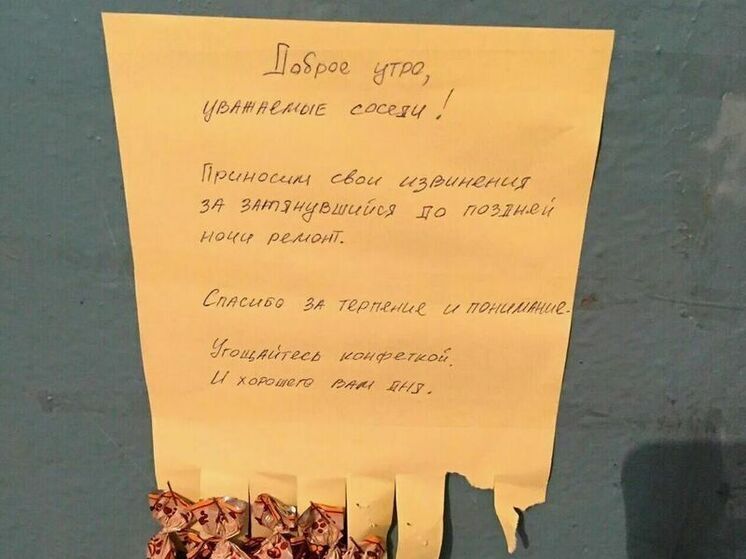 Доброе утро,
уважаемые соседи!
Приносим свои извинения
за затянувшийся до поздней
ночи ремонт.
Спасибо за терпение и понимание.
Угощайтесь конфеткой.
И хорошего вам дня.